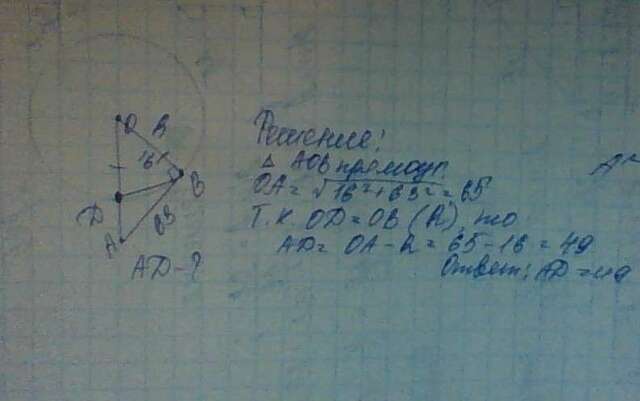 O R
16
B
D
63
A
AD - ?
Решение:
△ AOB прямоуг.
OA = √16²+63² = 65
Т.к. OD = OB (R), то
AD = OA - R = 65 - 16 = 49
Ответ: AD = 49